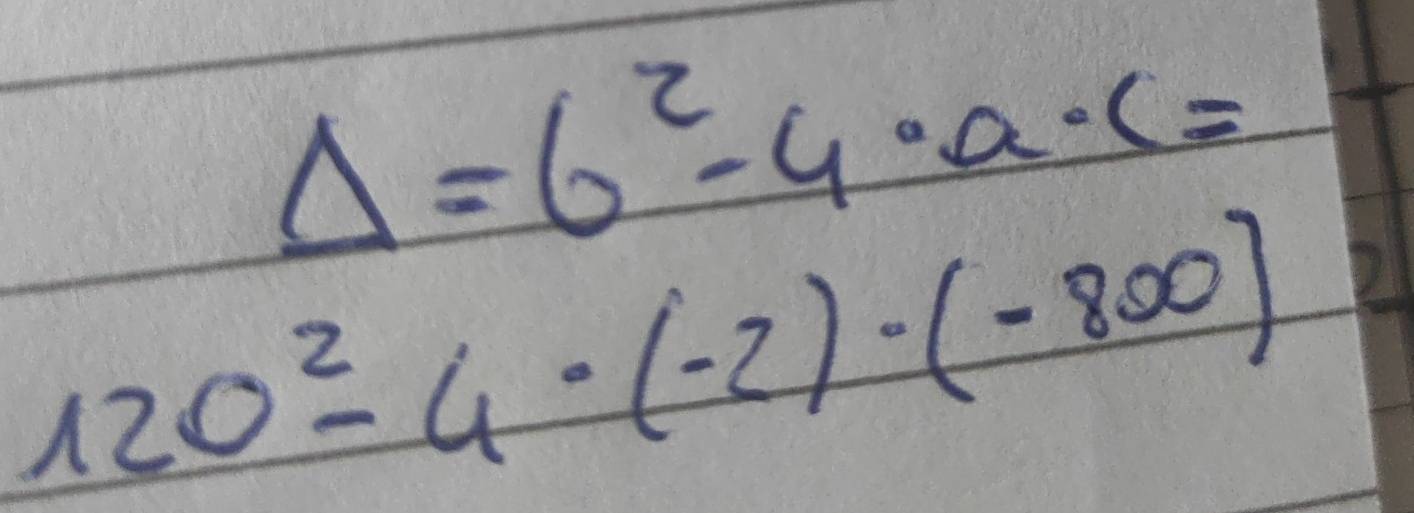 Δ = b² - 4 · a · c =
120² - 4 · (-2) · (-800)